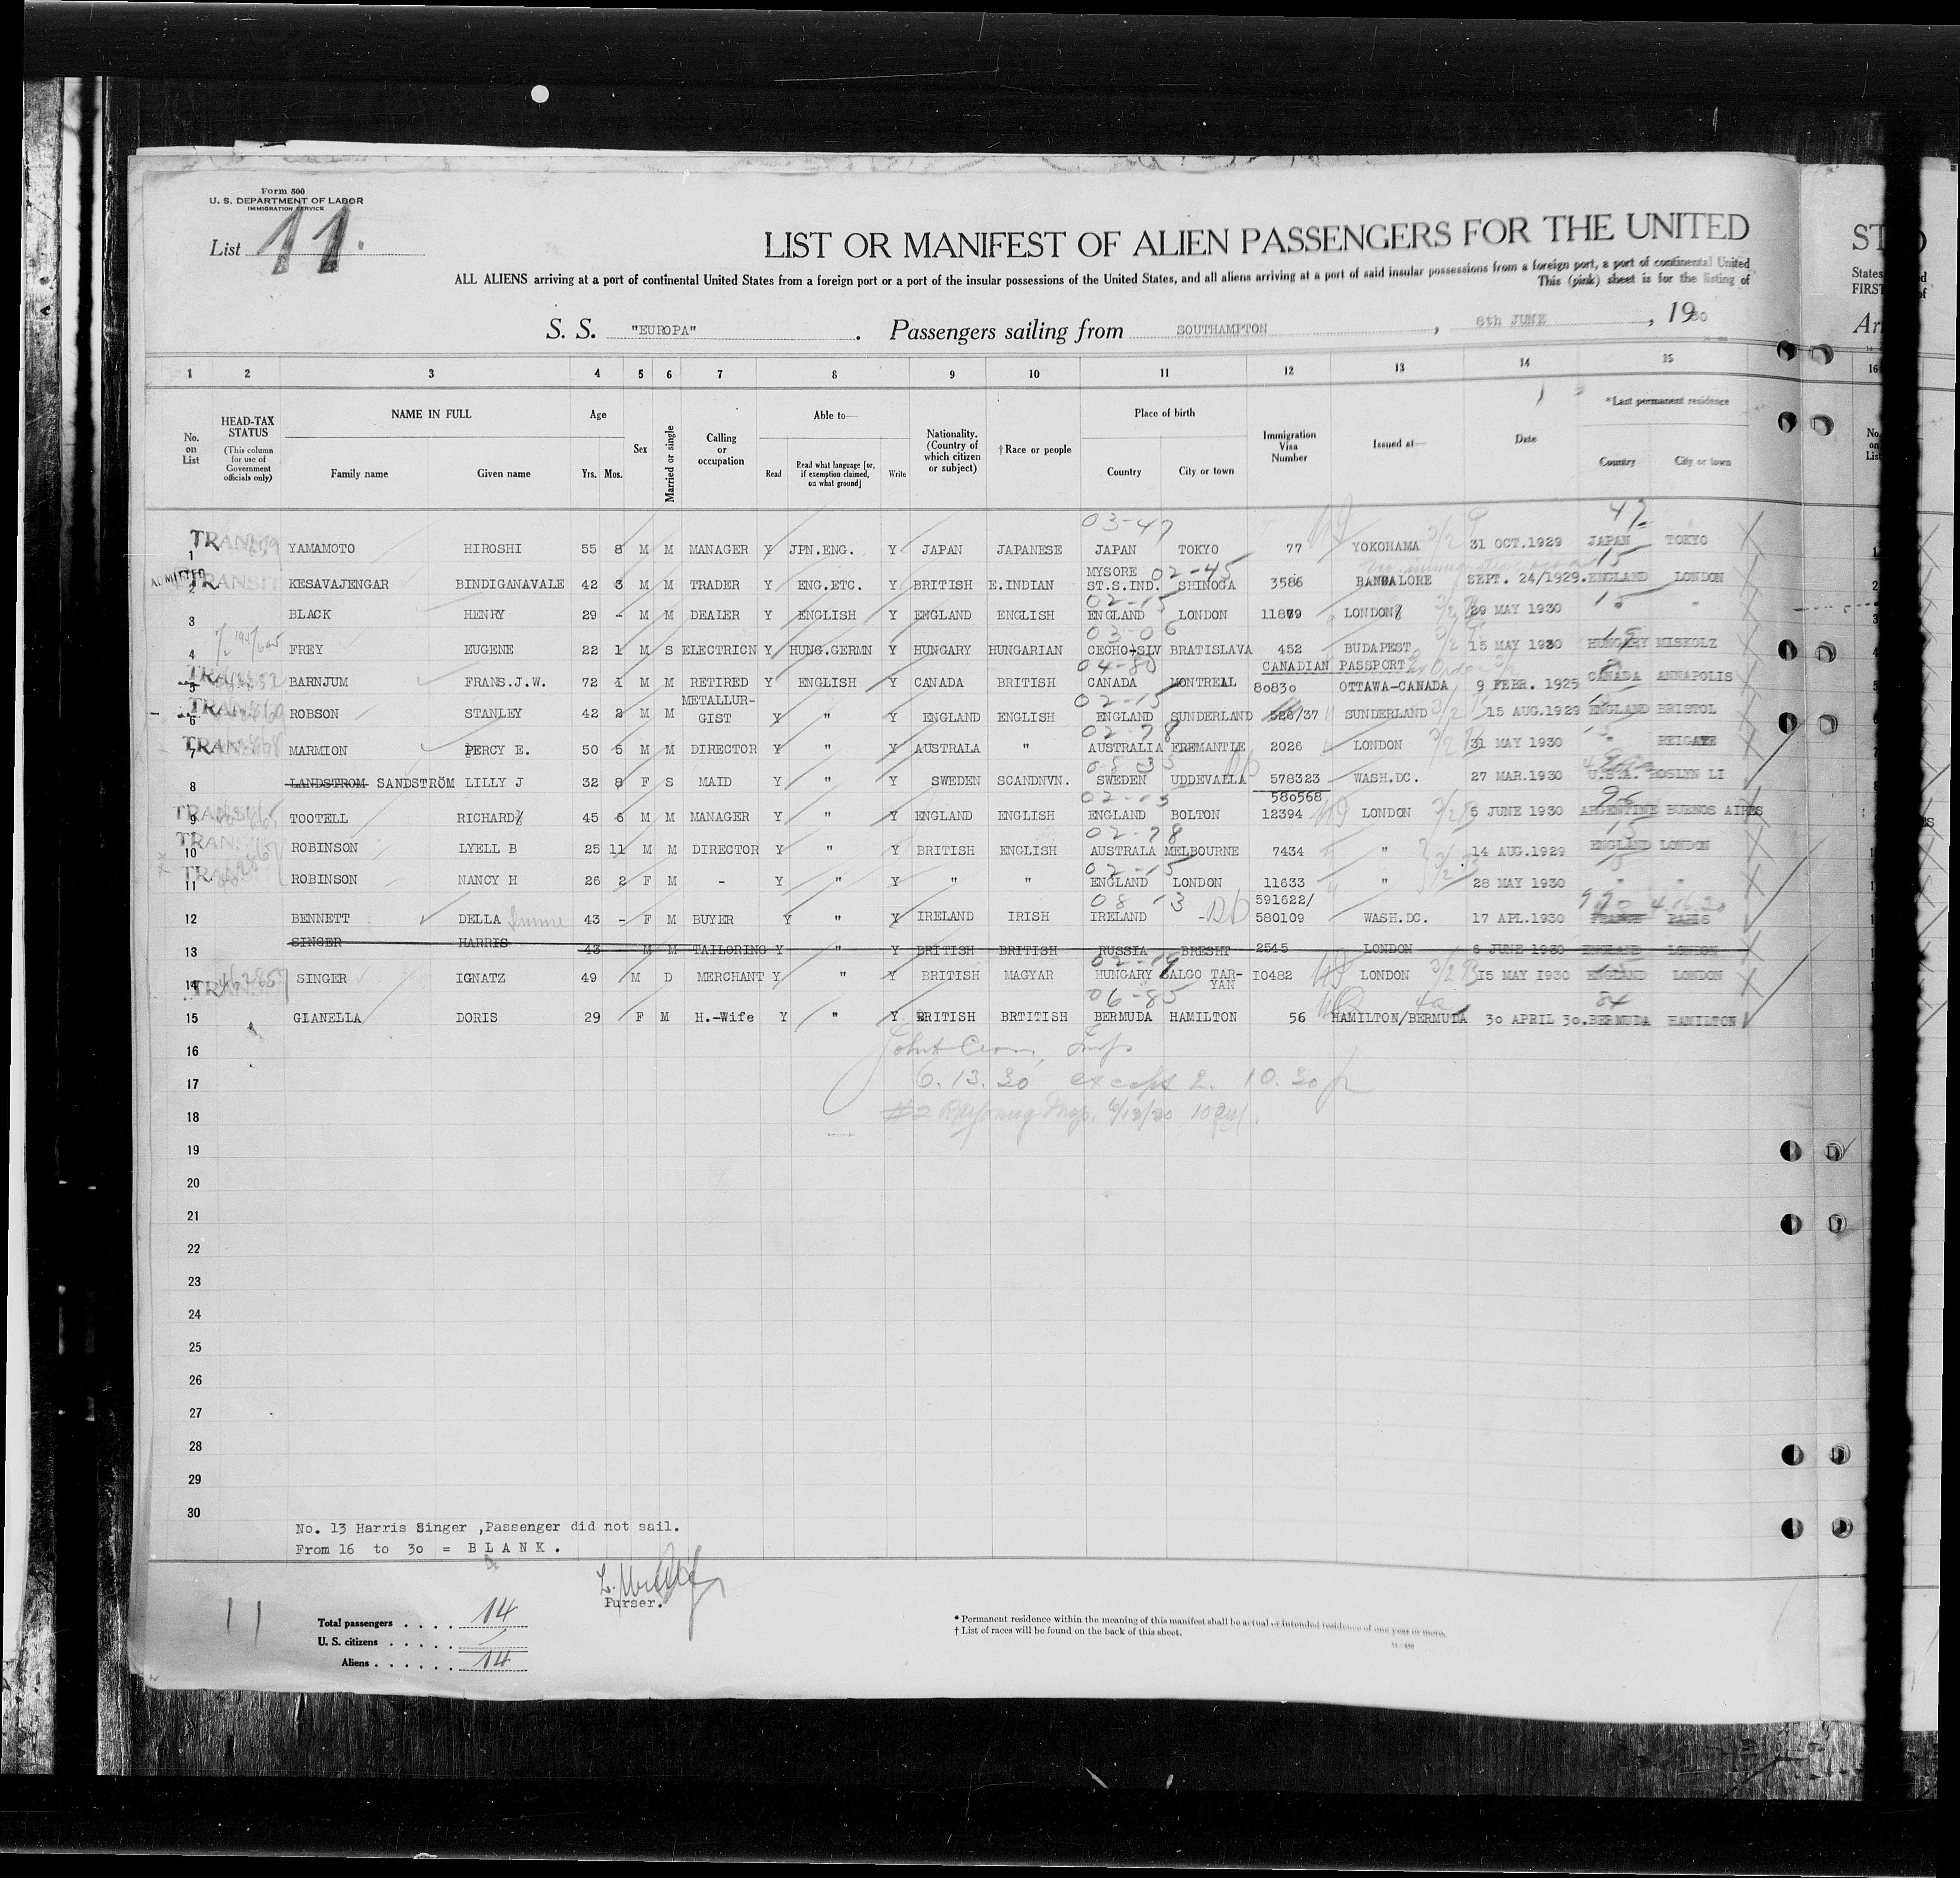 Form 500
U. S. DEPARTMENT OF LABOR
IMMIGRATION SERVICE
List 11.
LIST OR MANIFEST OF ALIEN PASSENGERS FOR THE UNITED
ALL ALIENS arriving at a port of continental United States from a foreign port or a port of the insular possessions of the United States, and all aliens arriving at a port of said insular possessions from a foreign port, a port of continental United
This (pink) sheet is for the listing of
S. S. "EUROPA". Passengers sailing from SOUTHAMPTON, 8th JUNE, 1930
1 2 3 4 5 6 7 8 9 10 11 12 13 14 15
No. on List
HEAD-TAX STATUS (This column for use of Government officials only)
NAME IN FULL Family name Given name
Age Yrs. Mos.
Sex
Married or single
Calling or occupation
Able to— Read Read what language [or, if exemption claimed, on what ground] Write
Nationality. (Country of which citizen or subject)
†Race or people
Place of birth Country City or town
Immigration Visa Number
Issued at—
Date
*Last permanent residence Country City or town
03-47 47
1 TRANSIT YAMAMOTO HIROSHI 55 8 M M MANAGER Y JPN.ENG. Y JAPAN JAPANESE JAPAN TOKYO 77 YOKOHAMA 31 OCT.1929 JAPAN TOKYO
02-45 15
2 ADMITTED TRANSIT KESAVAJENGAR BINDIGANAVALE 42 3 M M TRADER Y ENG.ETC. Y BRITISH E.INDIAN MYSORE ST.S.IND. SHINOGA 3586 BANGALORE SEPT. 24/1929. ENGLAND LONDON
02-15 15
3 BLACK HENRY 29 - M M DEALER Y ENGLISH Y ENGLAND ENGLISH ENGLAND LONDON 11879 LONDON 29 MAY 1930 " "
03-06
4 FREY EUGENE 22 1 M S ELECTRICN Y HUNG.GERMN Y HUNGARY HUNGARIAN CECHO-SLV BRATISLAVA 452 BUDAPEST 15 MAY 1930 HUNGARY MISKOLZ
04-80 CANADIAN PASSPORT
5 TRANSIT BARNJUM FRANS.J.W. 72 1 M M RETIRED Y ENGLISH Y CANADA BRITISH CANADA MONTREAL 80830 OTTAWA-CANADA 9 FEBR. 1925 CANADA ANNAPOLIS
02-15
6 TRANSIT ROBSON STANLEY 42 2 M M METALLUR-GIST Y " Y ENGLAND ENGLISH ENGLAND SUNDERLAND 526/37 SUNDERLAND 15 AUG.1929 ENGLAND BRISTOL
02-78
7 TRANSIT MARMION PERCY E. 50 5 M M DIRECTOR Y " Y AUSTRALA " AUSTRALIA FREMANTLE 2026 LONDON 31 MAY 1930 " REIGATE
08 35
8 LANDSTROM SANDSTRÖM LILLY J 32 8 F S MAID Y " Y SWEDEN SCANDNVN. SWEDEN UDDEVALLA 578323 580568 WASH.DC. 27 MAR.1930 U.S.A. ROSLYN LI
02-15
9 TRANSIT TOOTELL RICHARD 45 6 M M MANAGER Y " Y ENGLAND ENGLISH ENGLAND BOLTON 12394 LONDON 5 JUNE 1930 ARGENTINE BUENOS AIRES
02-78 15
10 TRANSIT ROBINSON LYELL B 25 11 M M DIRECTOR Y " Y BRITISH ENGLISH AUSTRALA MELBOURNE 7434 " 14 AUG.1929 ENGLAND LONDON
02-15 15
11 TRANSIT ROBINSON NANCY H 26 2 F M - Y " Y " " ENGLAND LONDON 11633 " 28 MAY 1930 " "
08 13
12 BENNETT DELLA 43 - F M BUYER Y " Y IRELAND IRISH IRELAND - 591622/ 580109 WASH.DC. 17 APL.1930 FRANCE PARIS
13 SINGER HARRIS 43 M M TAILORING Y " Y BRITISH BRITISH RUSSIA BRESHT 2545 LONDON 6 JUNE 1930 ENGLAND LONDON
02-19
14 TRANSIT SINGER IGNATZ 49 M D MERCHANT Y " Y BRITISH MAGYAR HUNGARY SALGO TAR-YAN I0482 LONDON 15 MAY I930 ENGLAND LONDON
06-85 84
15 GIANELLA DORIS 29 F M H.-Wife Y " Y BRITISH BRTITISH BERMUDA HAMILTON 56 HAMILTON/BERMUDA 30 APRIL 30. BERMUDA HAMILTON
16
6.13.30 except 2. 10.30 p
17
18
19
20
21
22
23
24
25
26
27
28
29
30
No. 13 Harris Singer ,Passenger did not sail.
From 16 to 30 = B L A N K .
Purser.
11
Total passengers . . . . 14
U. S. citizens . . . . .
Aliens . . . . . . 14
* Permanent residence within the meaning of this manifest shall be actual or intended residence of one year or more.
† List of races will be found on the back of this sheet.